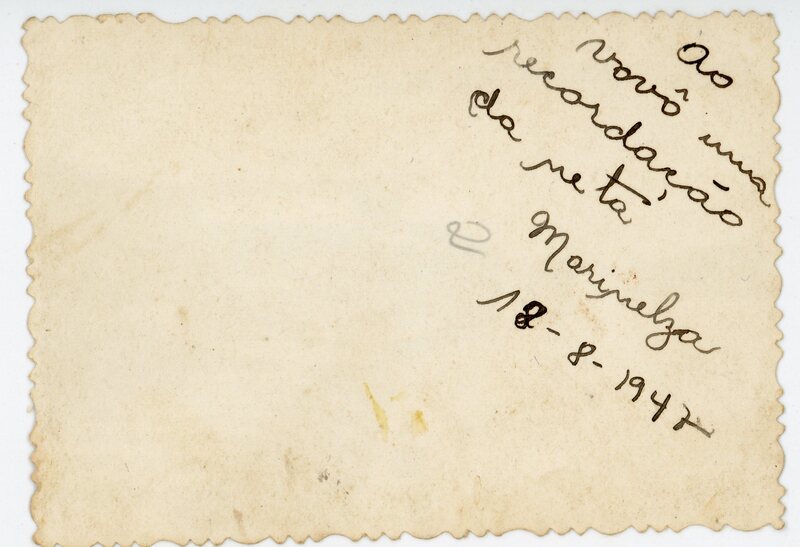 Ao
vovô uma
recordação
da neta
Marinelza
18-8-1947